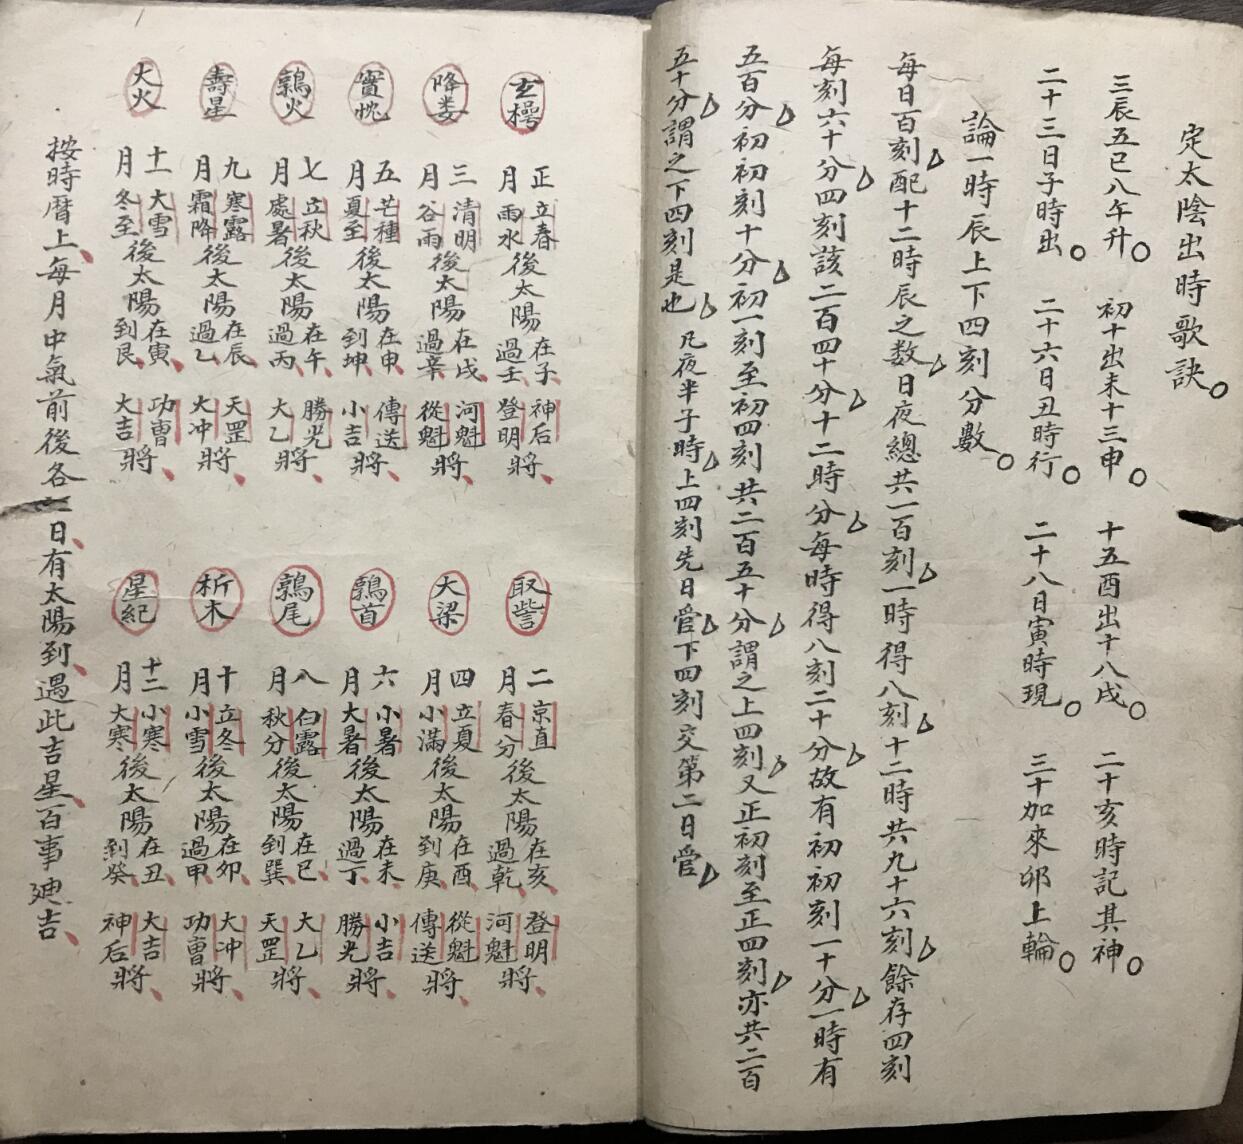 定太陰出時歌訣。
三辰五巳八午升。 初十出未十三申。 十五酉出十八戌。 二十亥時記其神。
二十三日子時出。 二十六日丑時行。 二十八日寅時現。 三十加來卯上輪。
論一時辰上下四刻分數。
每日百刻配十二時辰之数日夜總共一百刻一時得八刻十二時共九十六刻餘存四刻
每刻六十分四刻該二百四十分十二時分每時得八刻二十分故有初初刻一十分一時有
五百分初初刻十分初一刻至初四刻共二百五十分謂之上四刻又正初刻至正四刻亦共二百
五十分謂之下四刻是也 凡夜半子時上四刻先日管下四刻交第二日管
玄樗 正月立春雨水後太陽在子過壬神后登明將
娵訾 二月京直春分後太陽在亥過乾登明河魁將
降娄 三月清明谷雨後太陽在戌過辛河魁從魁將
大梁 四月立夏小滿後太陽在酉到庚從魁傳送將
實忱 五月芒種夏至後太陽在申到坤傳送小吉將
鶉首 六月小暑大暑後太陽在未過丁小吉勝光將
鶉火 七月立秋處暑後太陽在午過丙勝光大乙將
鶉尾 八月白露秋分後太陽在巳到巽大乙天罡將
壽星 九月寒露霜降後太陽在辰過乙天罡大冲將
析木 十月立冬小雪後太陽在卯過甲大冲功曹將
大火 十一月大雪冬至後太陽在寅到艮功曹大吉將
星紀 十二月小寒大寒後太陽在丑到癸大吉神后將
按時曆上每月中氣前後各日有太陽到遇此吉星百事廸吉